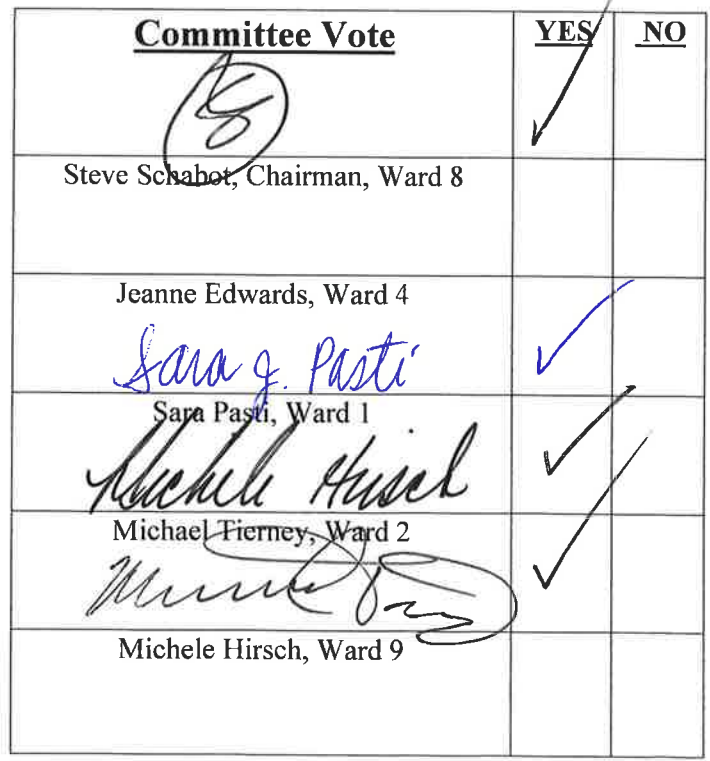 Committee Vote YES NO
Steve Schabot, Chairman, Ward 8
Jeanne Edwards, Ward 4
Sara J. Pasti
Sara Pasti, Ward 1
Michele Hirsch
Michael Tierney, Ward 2
Michele Hirsch, Ward 9